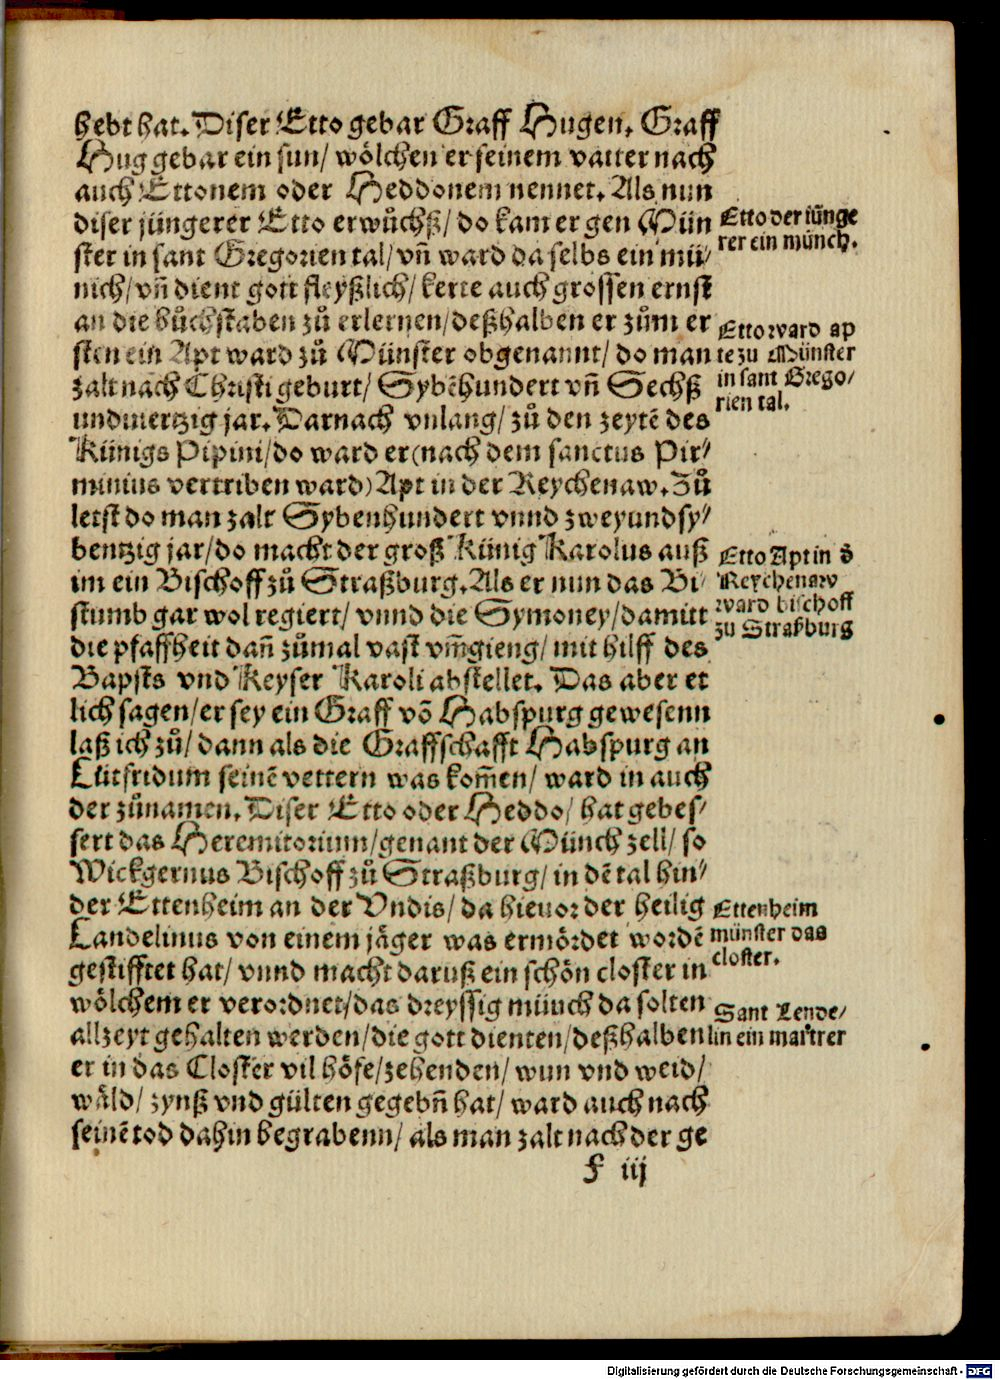 hebt hat. Diser Etto gebar Graff Hugen. Graff
Hug gebar ein sun/ wölchen er seinem vatter nach
auch Ettonem oder Heddonem nennet. Als nun
diser jüngerer Etto erwůchß/ do kam er gen Mün
ster in sant Gregorien tal/ vñ ward da selbs ein mü⸗
nich/ vñ dient gott fleyßlich/ kerte auch grossen ernst
an die bůchstaben zů erlernen/ deßhalben er zům er
sten ein Apt ward zů Münster obgenannt/ do man
zalt nach Christi geburt/ Sybẽhundert vñ Sechß
undviertzig jar. Darnach vnlang/ zů den zeytẽ des
Künigs Pipini/ do ward er (nach dem sanctus Pir⸗
minius vertriben ward) Apt in der Reychenaw. Zů
letst do man zalt Sybenhundert vnnd zweyundsy⸗
bentzig jar/ do macht der groß Künig Karolus auß
im ein Bischoff zů Straßburg. Als er nun das Bi⸗
stumb gar wol regiert/ vnnd die Symoney/ damitt
die pfaffheit dañ zůmal vast vm̃gieng/ mit hilff des
Bapsts vnd Keyser Karoli abstellet. Das aber et
lich sagen/ er sey ein Graff võ Habspurg gewesenn
laß ich zů/ dann als die Graffschafft Habspurg an
Lütfridum seinẽ vettern was kom̃en/ ward in auch
der zůnamen. Diser Etto oder Heddo/ hat gebes⸗
sert das Heremitorium/ genant der Münch zell/ so
Wickgernus Bischoff zů Straßburg/ in dẽ tal hin⸗
der Ettenheim an der Vndis/ da hieuor der heilig
Landelinus von einem jäger was ermördet wordẽ
gestifftet hat/ vnnd macht daruß ein schön closter in
wölchem er verordnet/ das dreyssig münch da solten
allzeyt gehalten werden/ die gott dienten/ deßhalben
er in das Closter vil höfe/ zehenden/ wun vnd weid/
wäld/ zynß vnd gülten gegebñ hat/ ward auch nach
seinẽ tod dahin begrabenn/ als man zalt nach der ge
F iij
Etto der jünge
rer ein münch.
Etto ward ap
te zu Münster
in sant Grego/
rien tal.
Etto Apt in d̕
Reychenaw
ward bischoff
zu Straßburg
Ettenheim
münster das
closter.
Sant Lende/
lin ein martrer
Digitalisierung gefördert durch die Deutsche Forschungsgemeinschaft - DFG